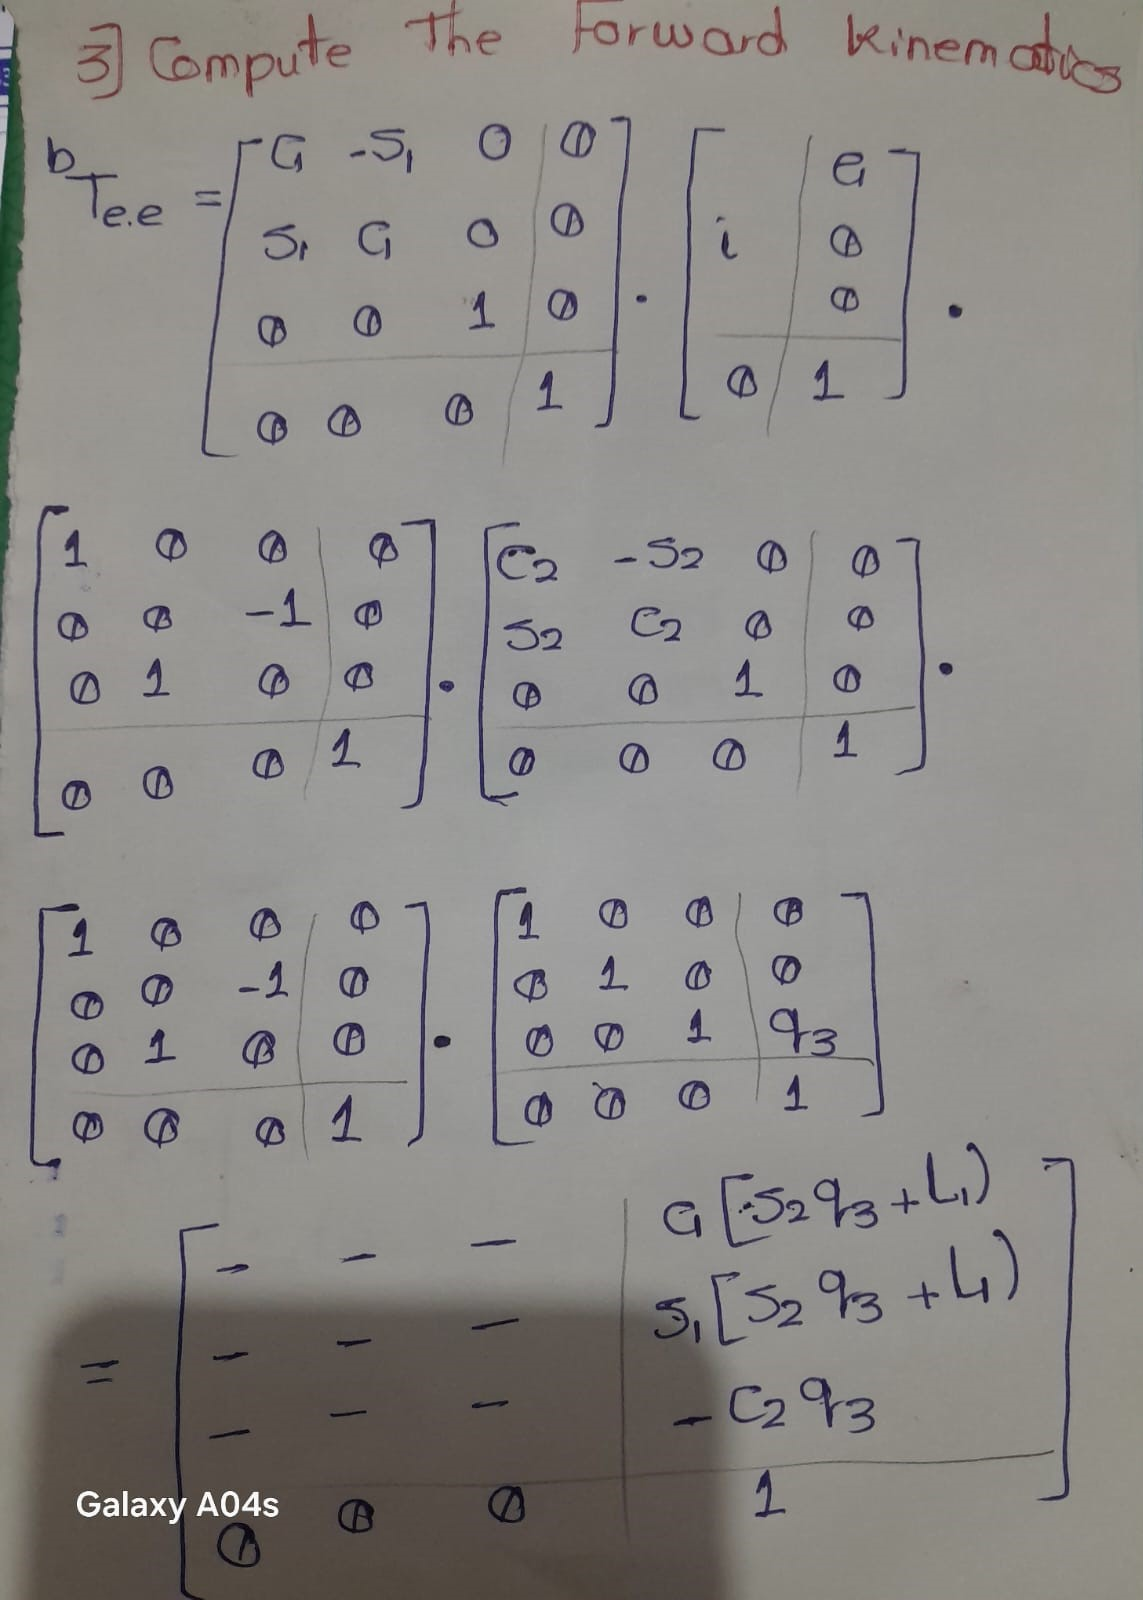 3] Compute The Forward kinematics
bTe.e = [ C1 -S1 0 | 0 ] . [ | e1 ] .
S1 C1 0 | 0   i | 0
0 0 1 | 0   | 0
0 0 0 | 1   0 | 1
[ 1 0 0 | 0 ] . [ C2 -S2 0 | 0 ] .
0 0 -1 | 0   S2 C2 0 | 0
0 1 0 | 0   0 0 1 | 0
0 0 0 | 1   0 0 0 | 1
[ 1 0 0 | 0 ] . [ 1 0 0 | 0 ]
0 0 -1 | 0   0 1 0 | 0
0 1 0 | 0   0 0 1 | q3
0 0 0 | 1   0 0 0 | 1
= [ - - - | C1 [S2 q3 + L1) ]
- - - | S1 [S2 q3 + L1)
- - - | - C2 q3
0 0 0 | 1
Galaxy A04s